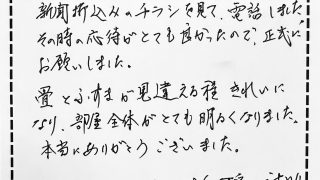 新聞折込みのチラシを見て、電話しました。
その時の応待がとても良かったので、正式に
お願いしました。
畳とふすまが見違える程 きれいに
なり、部屋全体がとても明るくなりました。
本当にありがとうございました。